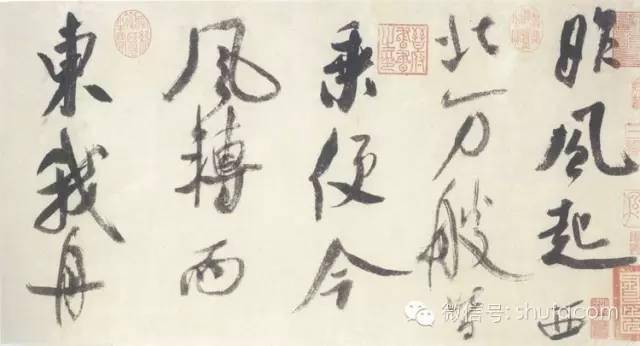 昨風起西
北万艘皆
乘便今
風轉而
東我舟
微信号: shufacom